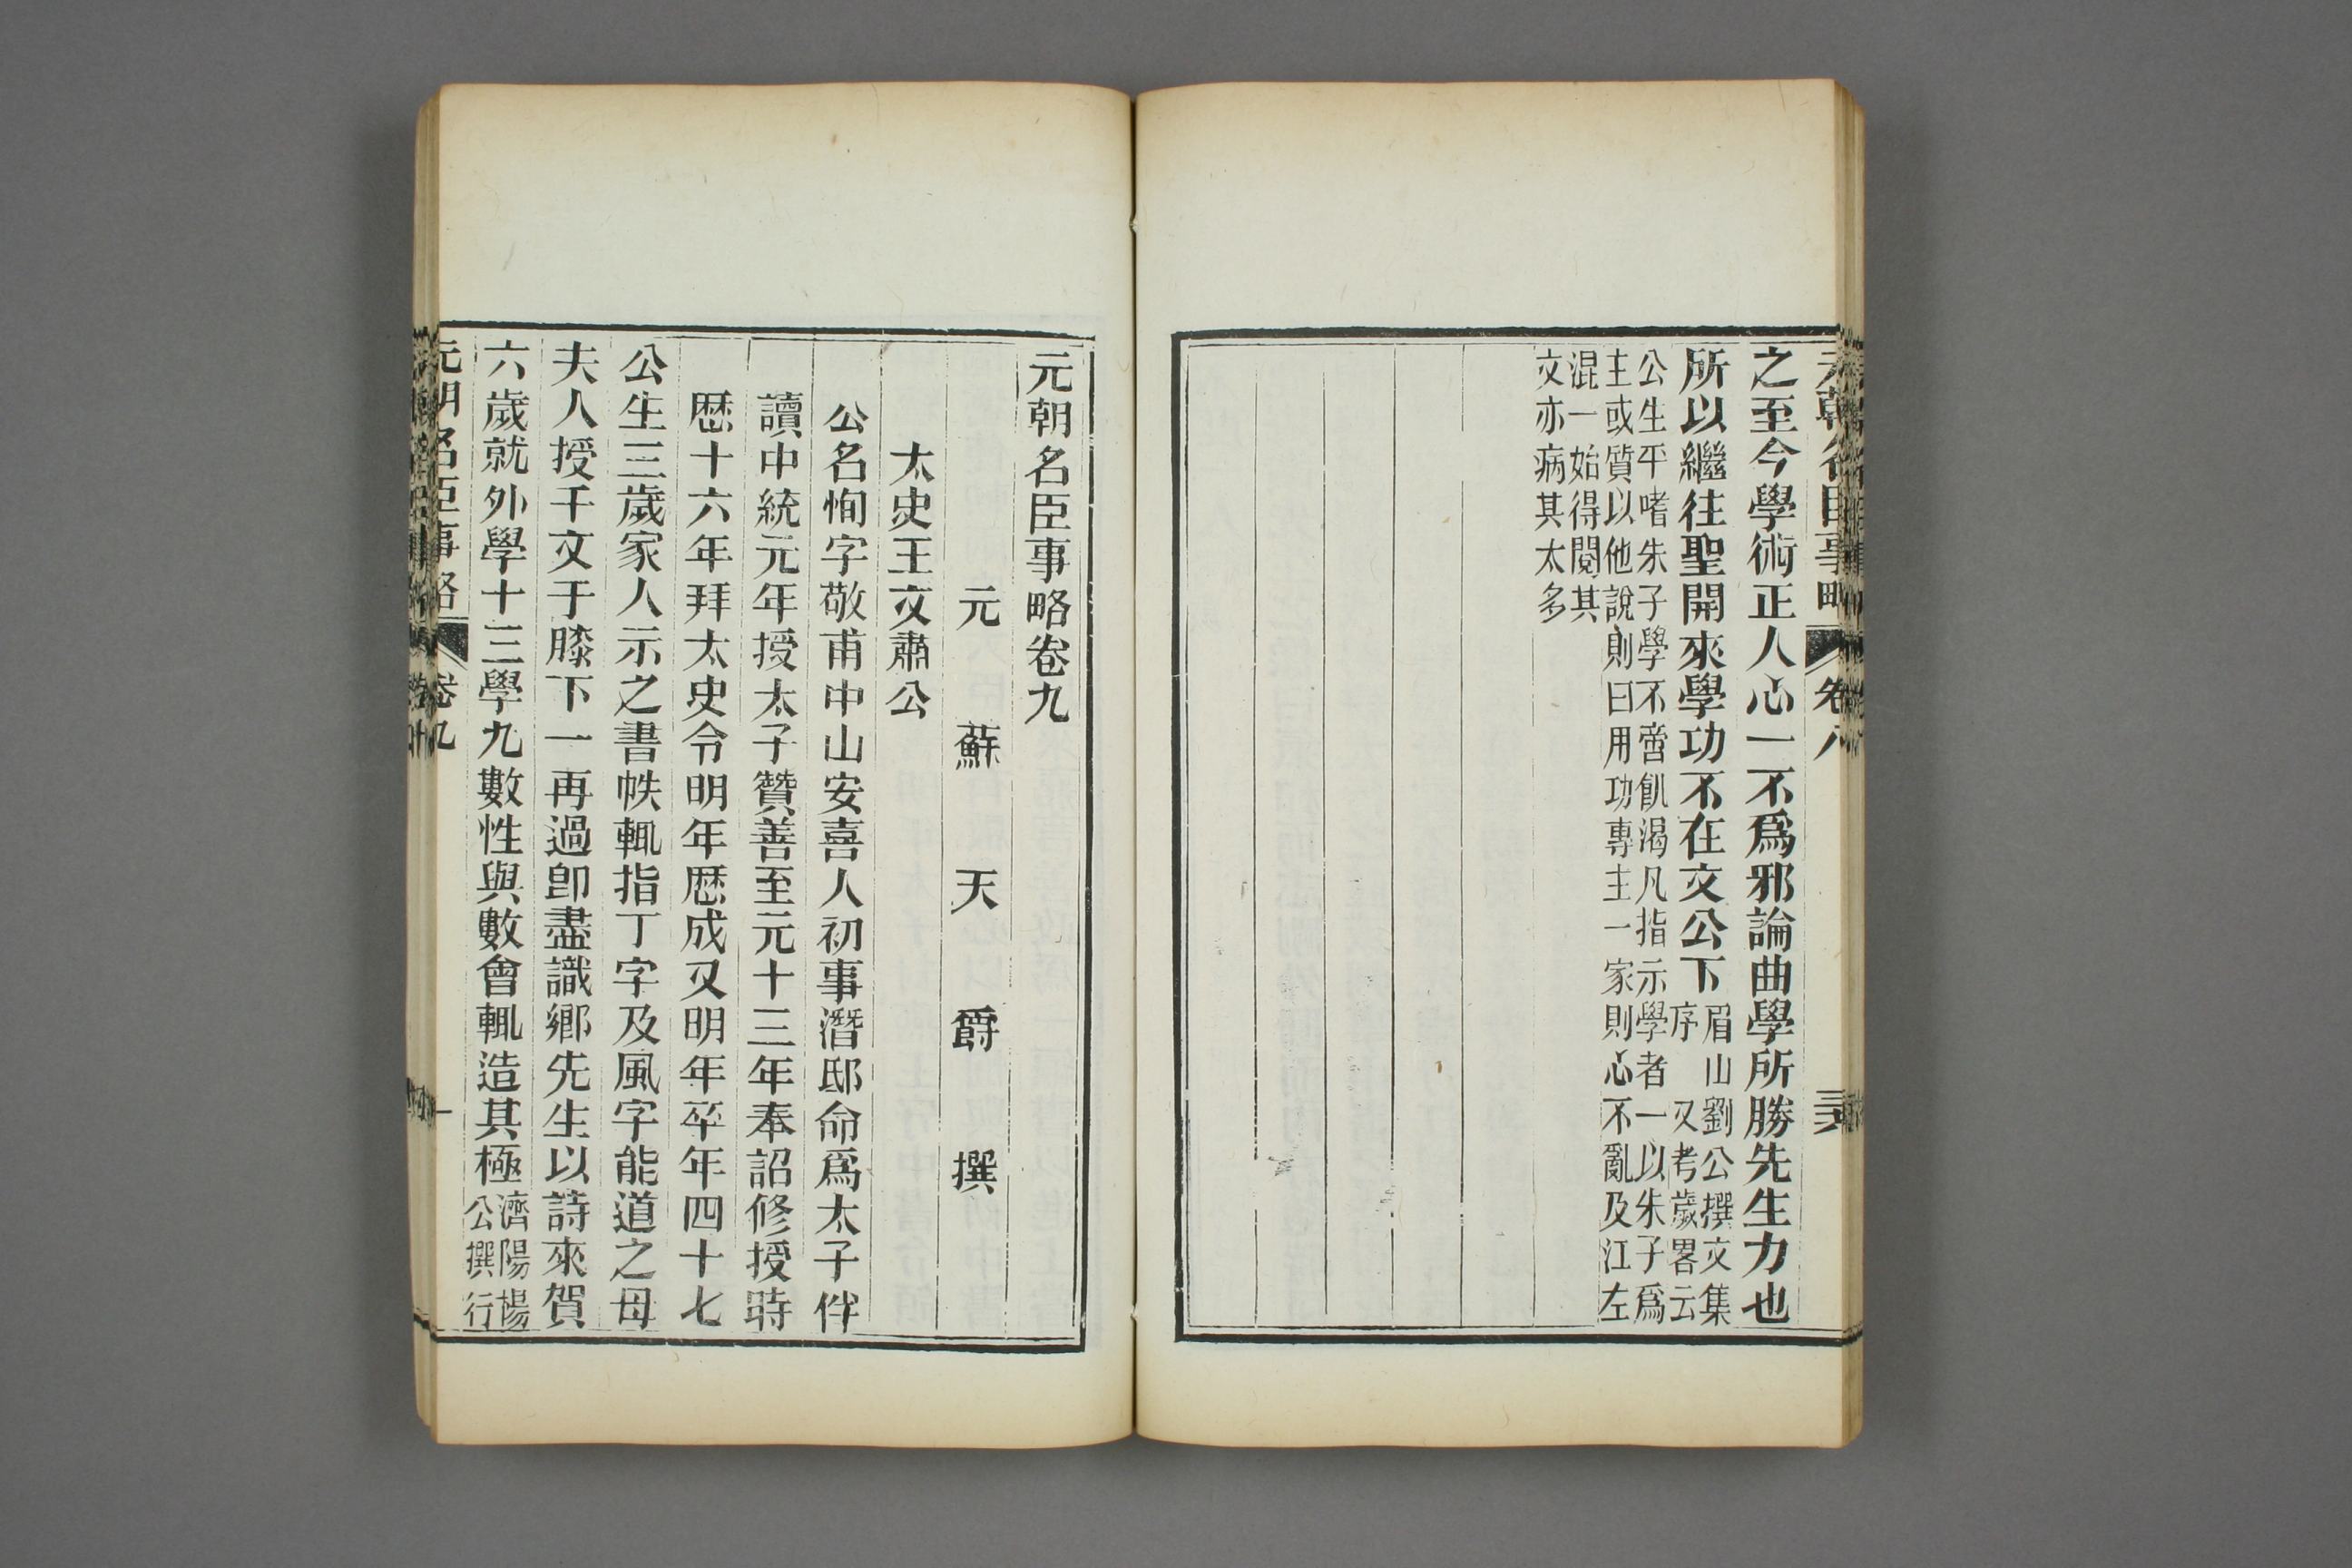 元朝名臣事略 卷八 三六
之至今學術正人心一不爲邪論曲學所勝先生力也
所以繼往聖開來學功不在文公下眉山劉公撰文集序 又考歲畧云
公生平嗜朱子學不啻飢渴凡指示學者一以朱子爲
主或質以他說則曰用功專主一家則心不亂及江左
混一始得閱其
文亦病其太多
元朝名臣事略卷九
元 蘇 天 爵 撰
太史王文肅公
公名恂字敬甫中山安喜人初事潛邸命爲太子伴
讀中統元年授太子贊善至元十三年奉詔修授時
厯十六年拜太史令明年厯成又明年卒年四十七
公生三歲家人示之書帙輒指丁字及風字能道之母
夫人授千文于膝下一再過卽盡識鄉先生以詩來賀
六歲就外學十三學九數性與數會輒造其極濟陽楊公撰行
元朝名臣事略 卷九 一